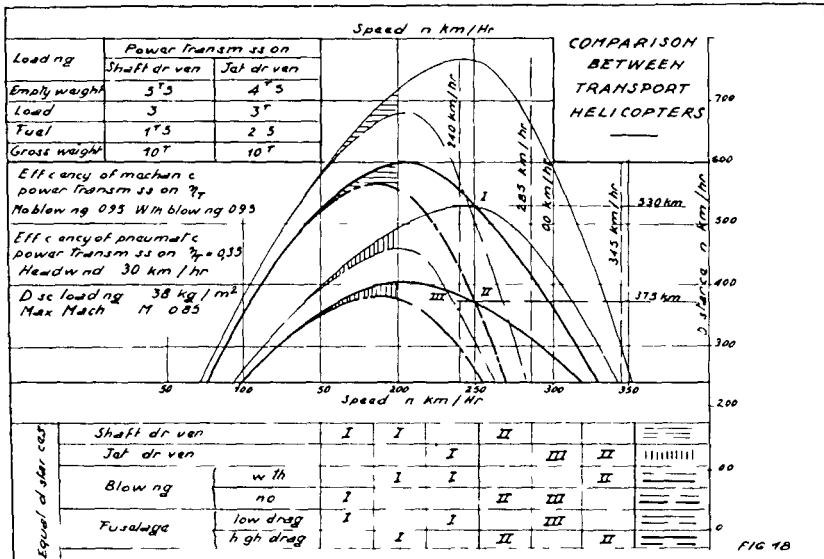 Speed n km/Hr
COMPARISON
BETWEEN
TRANSPORT
HELICOPTERS
Loading
Power Transm ss on
Shaft dr ven
Jat dr ven
Empty weight 5T5 4T5
Load 3 3T
Fuel 1T5 2 5
Gross weight 10T 10T
Eff c ency of mechan c
power transm ss on ηT
No blow ng 095 W th blow ng 095
Eff c ency of pneumat c
power transm ss on ηT = 0,55
Headw nd 30 km / hr
D sc load ng 38 kg / m²
Max Mach M 085
240 km/hr
285 km/hr
00 km/hr
345 km/hr
530 km
375 km
I
II
III
700
600
500
400
300
200
00
0
D stance n km/hr
50 100 50 200 250 300 350
Speed n km/Hr
Equal d star ces
Shaft dr ven I I II
Jat dr ven I III II
Blow ng
w th I I II
no I II III
Fusalage
low drag I I III
h gh drag I II II
FIG 18